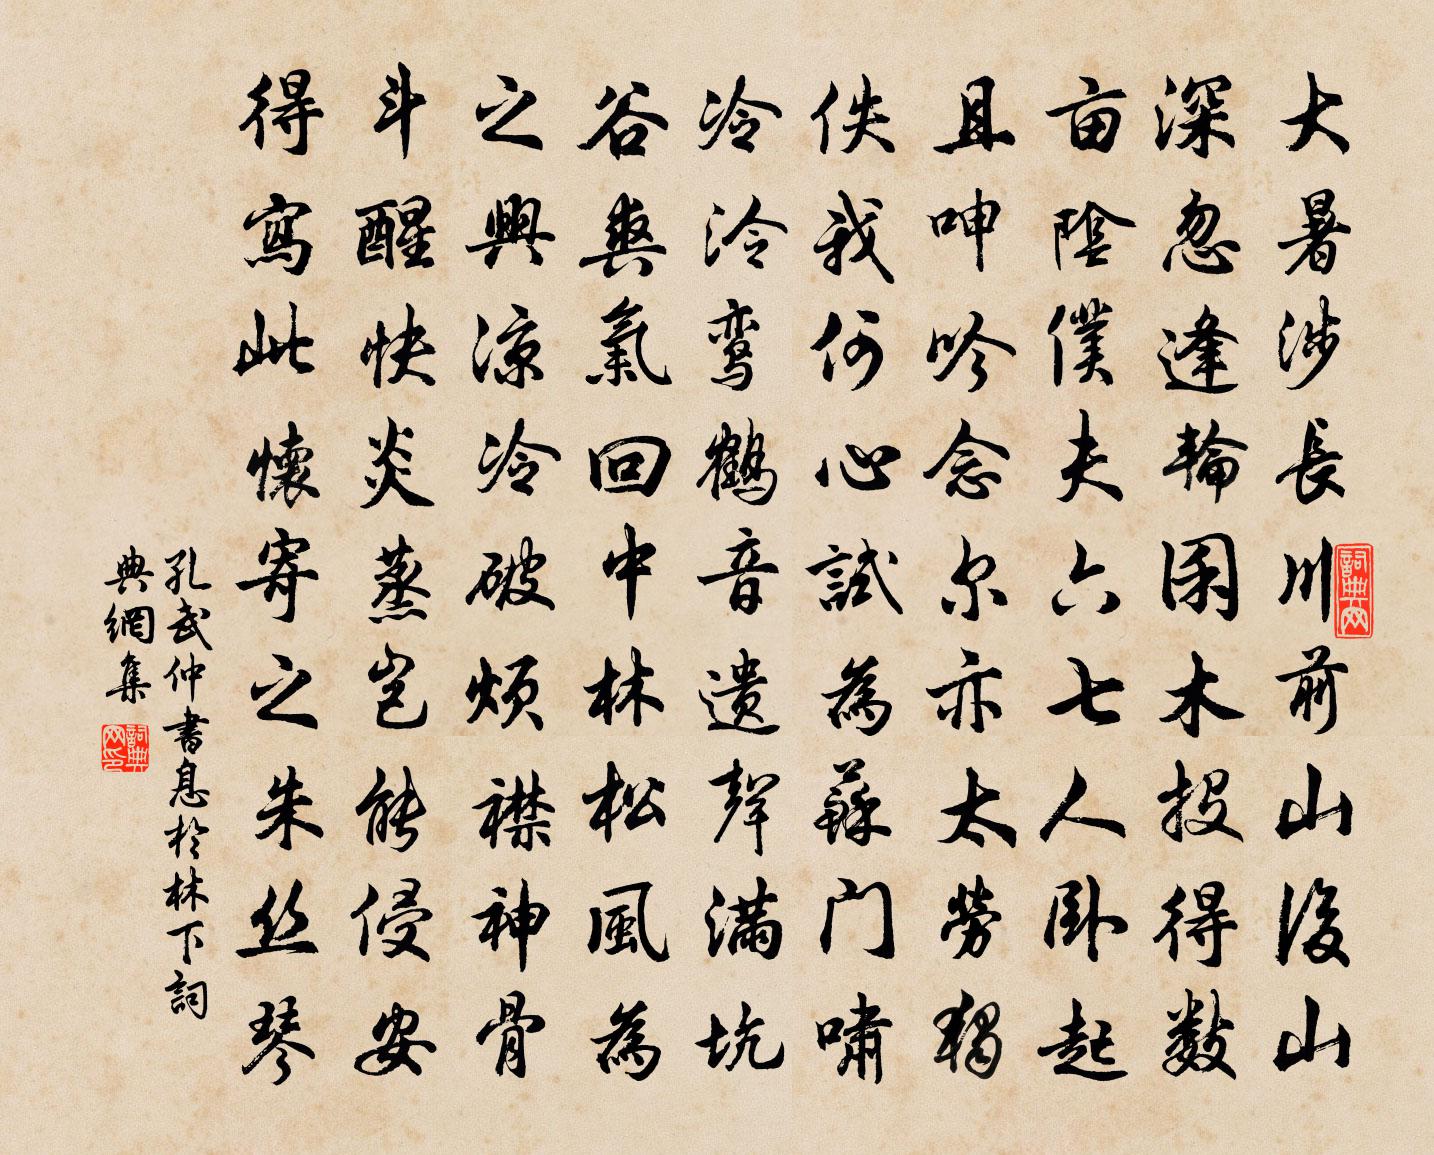 大暑涉長川前山後山
深忽逢輪囷木投得數
亩陰僕夫六七人卧起
且呻吟念尔亦太勞獨
佚我何心試為蘇门嘯
冷泠鸾鶴音遗聲满坑
谷爽氣回中林松風為
之興凉冷破烦襟神骨
斗醒快炎蒸岂能侵安
得寫此懷寄之朱丝琴
孔武仲書息於林下詞
典網集
詞典网
詞典网印